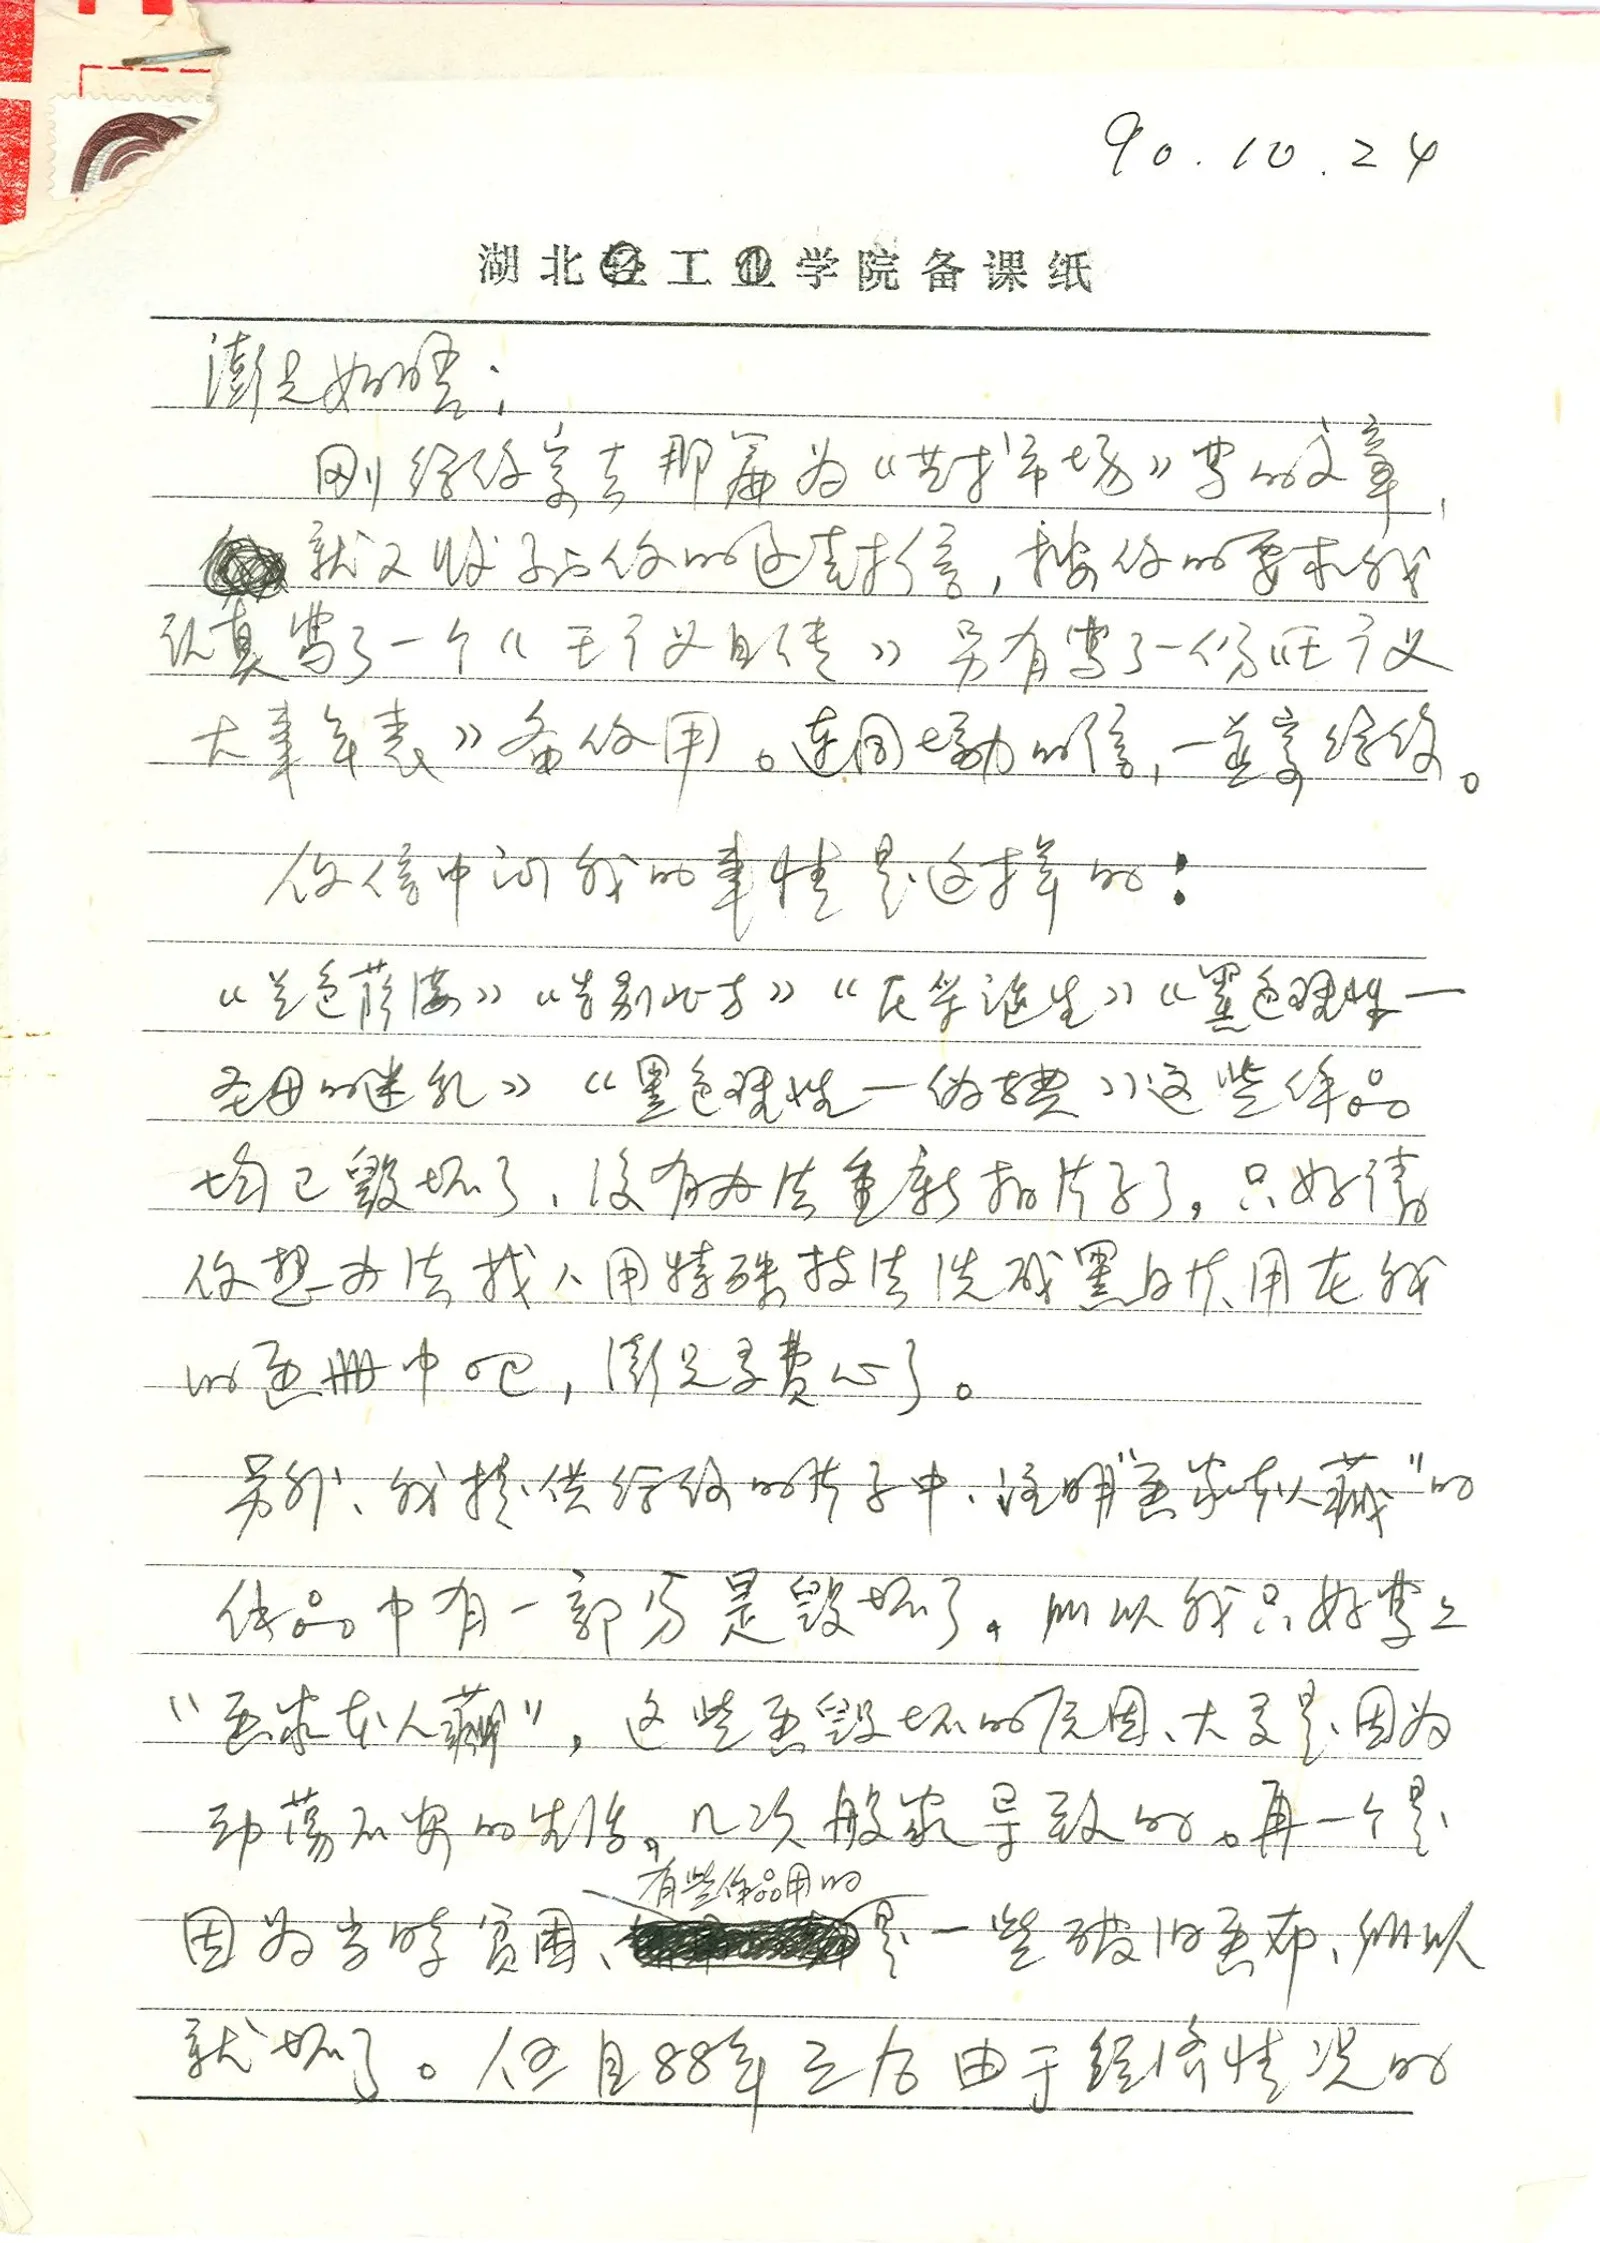 90.10.24
湖北轻工业学院备课纸
澎兄如晤：
刚给你寄去那篇为《艺术市场》写的文章，
就又收到你的这封信，按你的要求我
认真写了一个《王广义自传》另有写了一份《王广义
大事年表》备你用。连同的信，一并寄给你。
你信中问我的事情是这样的：
《兰色》《告别北方》《在学近生》《黑色理性—
圣母的哺乳》《黑色理性—伪典》这些作品
均已毁坏了、没有办法重新拍片子了。只好请
你想办法找人用特殊技法洗成黑白片用在我
的画册中吧，澎兄多费心了。
另外、我提供给你的片子中、注明"画家本人藏"的
作品中有一部分是毁坏了。所以我只好写上
"画家本人藏"，这些画毁坏的原因、大多是因为
动荡不安的生活，几次般家导致的。再一个是
因为当时贫困、有些作品用的是一些破旧画布、所以
就坏了。但自88年之后由于经济情况的